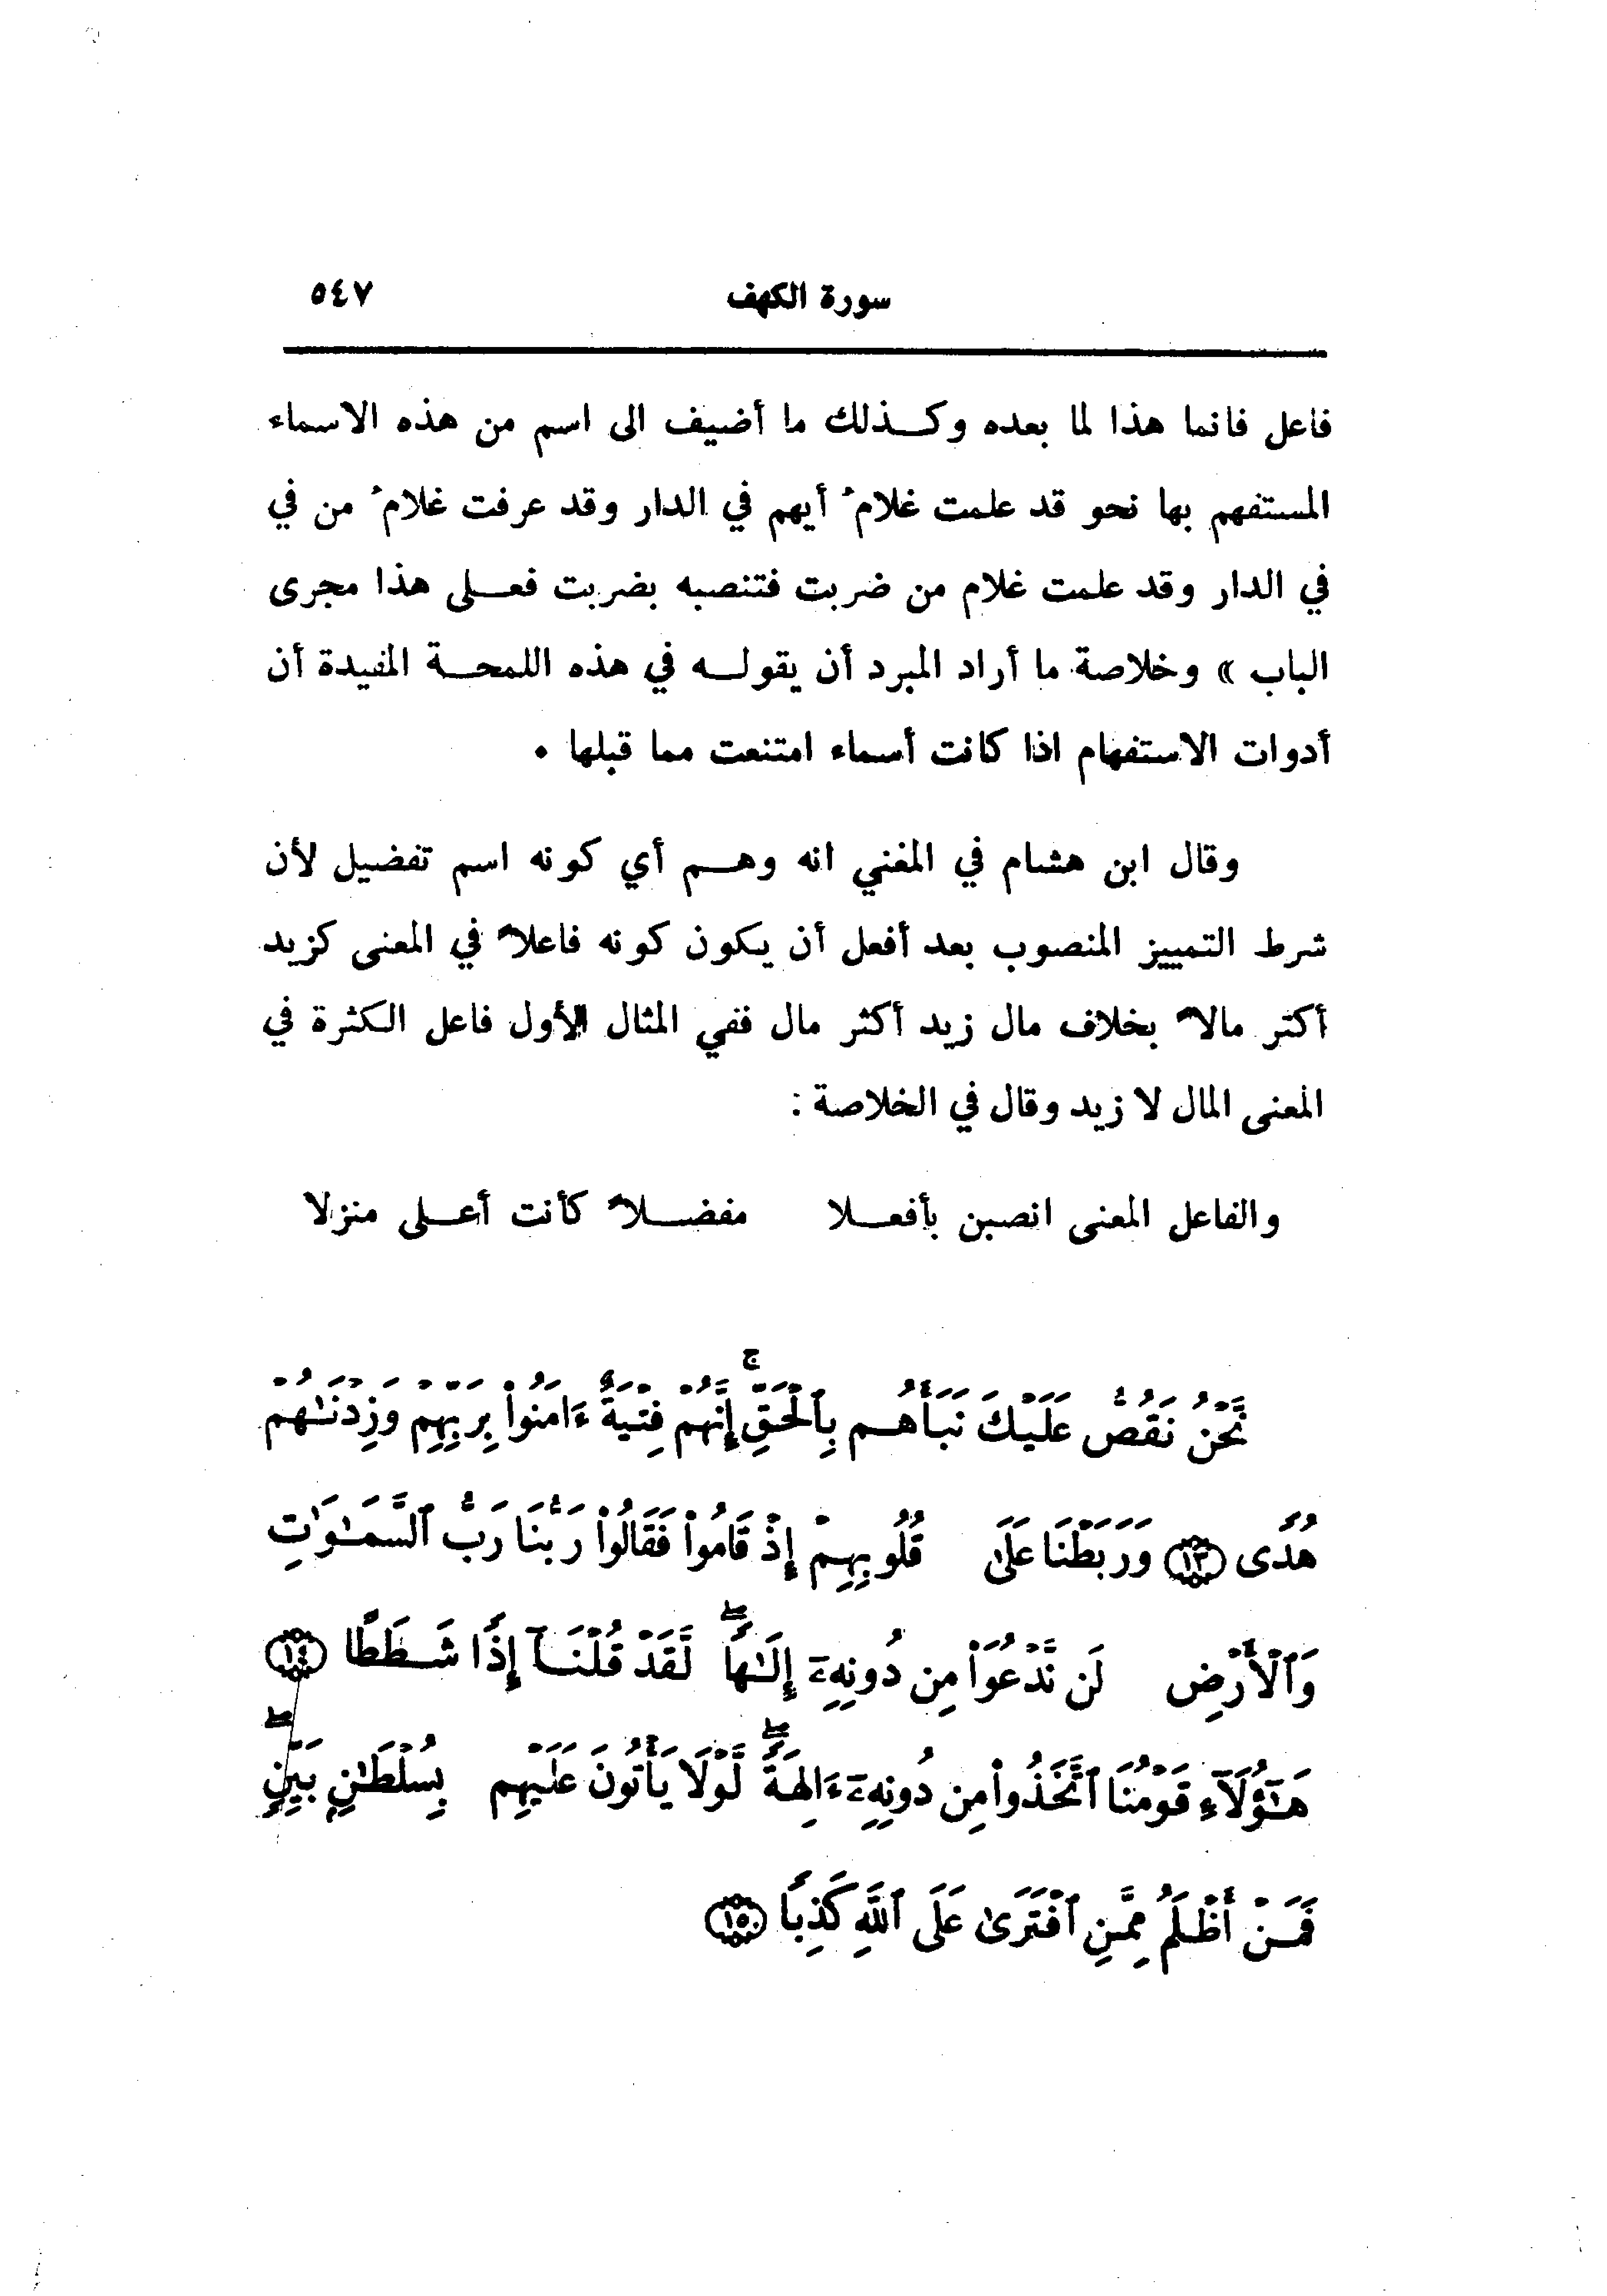 سورة الكهف ٥٤٧
فاعل فانما هذا لما بعده وكـــذلك ما أضيف الى اسم من هذه الاسماء
المستفهم بها نحو قد علمت غلامُ أيهم في الدار وقد عرفت غلامُ من في
في الدار وقد علمت غلام من ضربت فتنصبه بضربت فعـــلى هذا مجرى
الباب » وخلاصة ما أراد المبرد أن يقولـــه في هذه اللمحـــة المفيدة أن
أدوات الاستفهام اذا كانت أسماء امتنعت مما قبلها •
وقال ابن هشام في المغني انه وهـــم أي كونه اسم تفضيل لأن
شرط التمييز المنصوب بعد أفعل أن يكون كونه فاعلاً في المعنى كزيد
أكثر مالاً بخلاف مال زيد أكثر مال ففي المثال الأول فاعل الكثرة في
المعنى المال لا زيد وقال في الخلاصة :
والفاعل المعنى انصبن بأفعـــلا مفضـــلاً كأنت أعـــلى منزلا
نَّحْنُ نَقُصُّ عَلَيْكَ نَبَأَهُـم بِٱلْحَقِّ ۚ إِنَّهُمْ فِتْيَةٌ ءَامَنُوا۟ بِرَبِّهِمْ وَزِدْنَـٰهُمْ
هُدًى ﴿١٣﴾ وَرَبَطْنَا عَلَىٰ قُلُوبِهِمْ إِذْ قَامُوا۟ فَقَالُوا۟ رَبُّنَا رَبُّ ٱلسَّمَـٰوَٰتِ
وَٱلْأَرْضِ لَن نَّدْعُوَا۟ مِن دُونِهِۦٓ إِلَـٰهًا ۖ لَّقَدْ قُلْنَـآ إِذًا شَـطَطًا ﴿١٤﴾
هَـٰٓؤُلَآءِ قَوْمُنَا ٱتَّخَذُوا۟ مِن دُونِهِۦٓ ءَالِهَةً ۖ لَّوْلَا يَأْتُونَ عَلَيْهِم بِسُلْطَـٰنٍۭ بَيِّنٍ ۖ
فَمَـنْ أَظْـلَمُ مِمَّـنِ ٱفْتَرَىٰ عَلَى ٱللَّهِ كَذِبًا ﴿١٥﴾